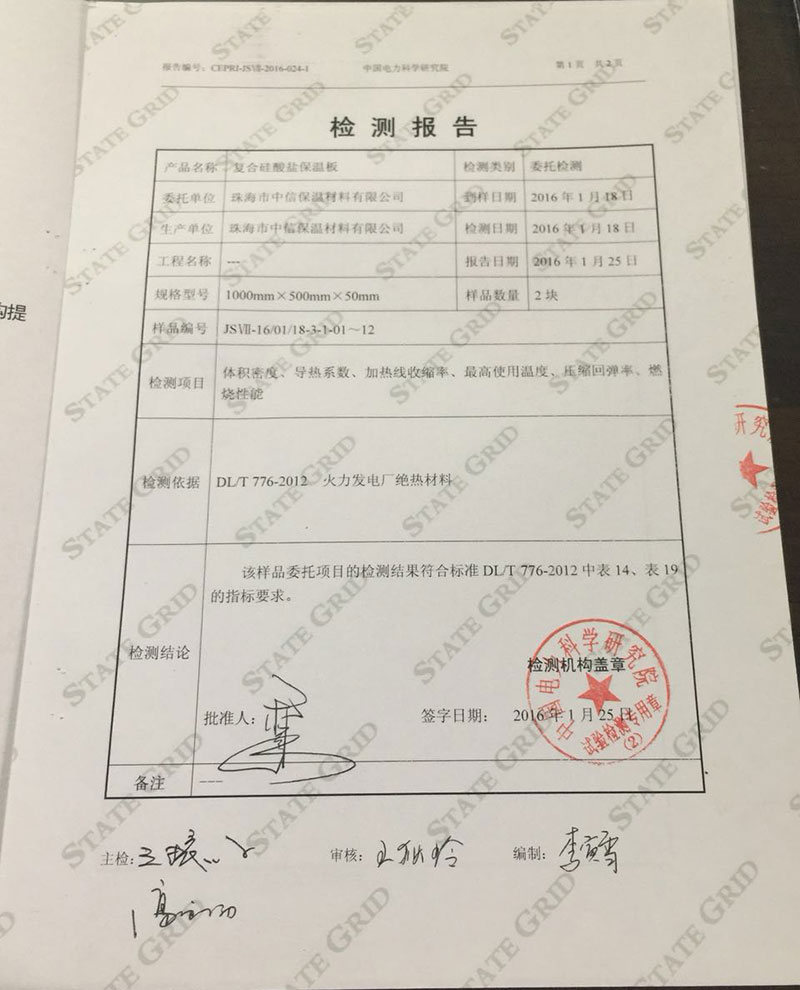 报告编号：CEPRI-JSⅦ-2016-024-1 中国电力科学研究院 第1页 共2页
检测报告
产品名称 复合硅酸盐保温板 检测类别 委托检测
委托单位 珠海市中信保温材料有限公司 到样日期 2016年1月18日
生产单位 珠海市中信保温材料有限公司 检测日期 2016年1月18日
工程名称 --- 报告日期 2016年1月25日
规格型号 1000mm×500mm×50mm 样品数量 2块
样品编号 JSⅦ-16/01/18-3-1-01～12
检测项目 体积密度、导热系数、加热线收缩率、最高使用温度、压缩回弹率、燃
烧性能
检测依据 DL/T 776-2012 火力发电厂绝热材料
该样品委托项目的检测结果符合标准 DL/T 776-2012 中表 14、表 19
的指标要求。
检测结论
检测机构盖章
批准人： 签字日期： 2016年1月25日
中国电力科学研究院
试验检测专用章
(2)
备注 ---
主检： 审核： 编制：李寅雪
构提
研究
STATE GRID